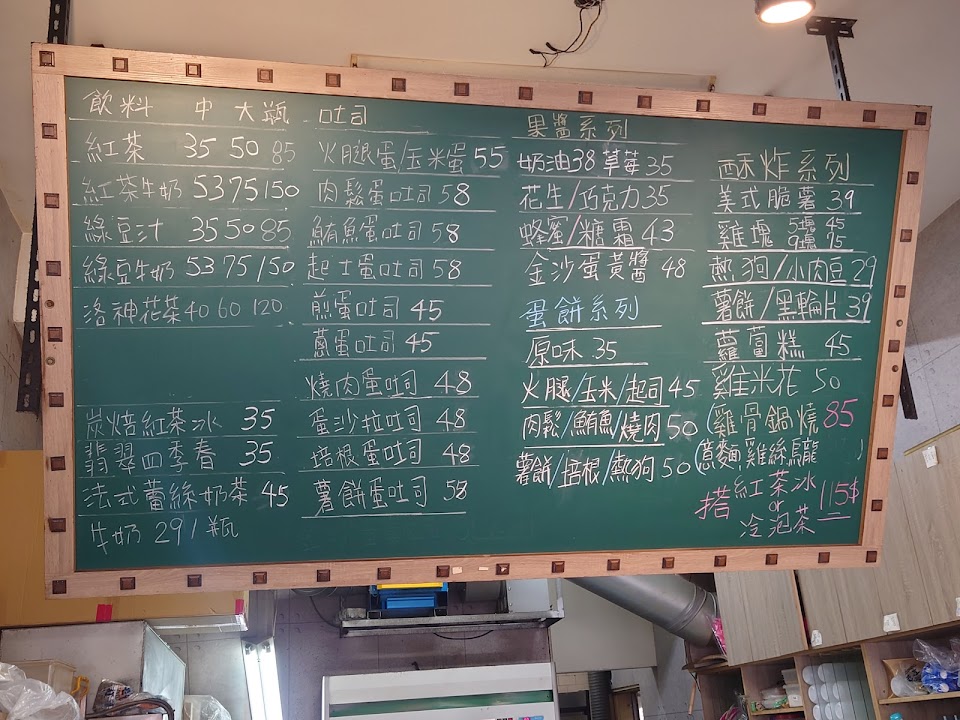 飲料 中 大 瓶
紅茶 35 50 85
紅茶牛奶 53 75 150
綠豆汁 35 50 85
綠豆牛奶 53 75 150
洛神花茶 40 60 120
炭焙紅茶冰 35
翡翠四季春 35
法式蕾絲奶茶 45
牛奶 29/瓶
吐司
火腿蛋/玉米蛋 55
肉鬆蛋吐司 58
鮪魚蛋吐司 58
起士蛋吐司 58
煎蛋吐司 45
蔥蛋吐司 45
燒肉蛋吐司 48
蛋沙拉吐司 48
培根蛋吐司 48
薯餅蛋吐司 58
果醬系列
奶油38 草莓35
花生/巧克力35
蜂蜜/糖霜 43
金沙蛋黃醬 48
蛋餅系列
原味 35
火腿/玉米/起司 45
肉鬆/鮪魚/燒肉 50
薯餅/培根/熱狗 50
酥炸系列
美式脆薯 39
雞塊 5塊 45
9塊 75
熱狗/小肉豆 29
薯餅/黑輪片 39
蘿蔔糕 45
雞米花 50
(雞骨鍋燒 85
(意麵,雞絲,烏龍)
搭 紅茶冰
or 115$
冷泡茶